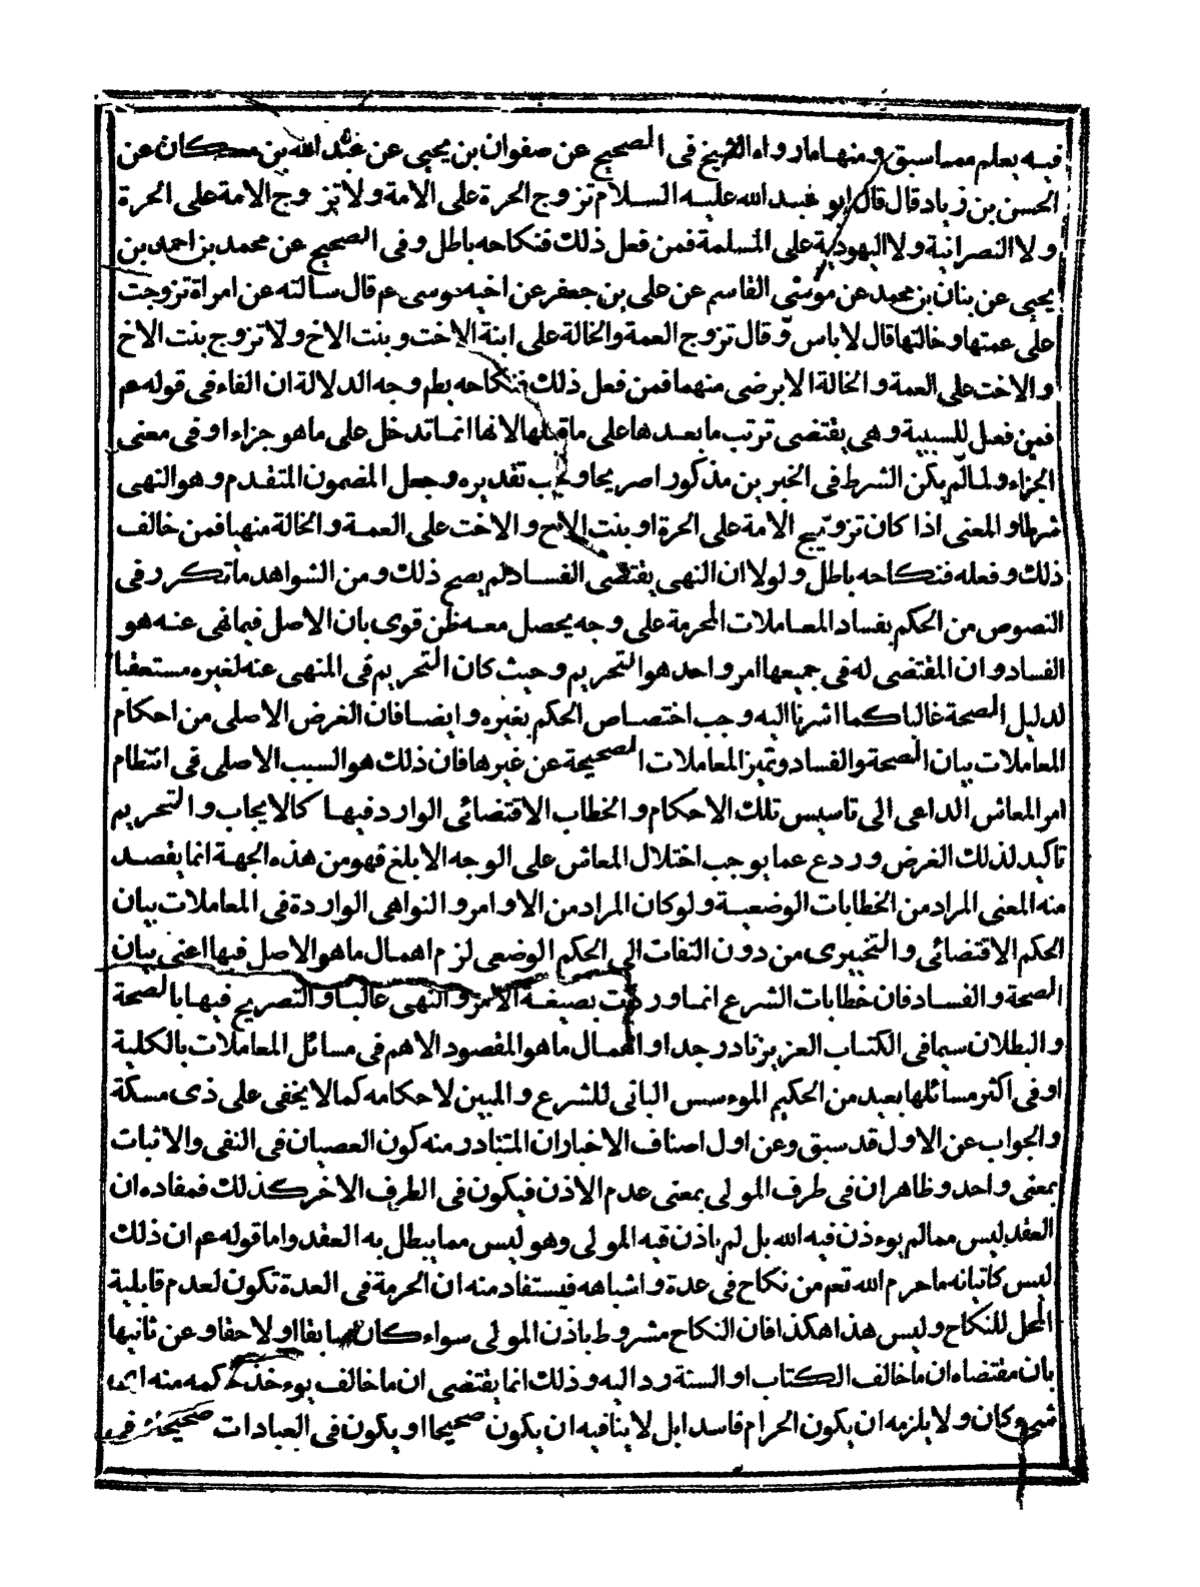 فيه يعلم مما سبق ومنها ما رواه الشيخ فى الصحيح عن صفوان بن يحيى عن عبد الله بن مسكان عن
الحسن بن زياد قال قال ابو عبد الله عليه السلام تزوج الحرة على الامة ولا تزوج الامة على الحرة
ولا النصرانية ولا اليهودية على المسلمة فمن فعل ذلك فنكاحه باطل وفى الصحيح عن محمد بن احمد بن
يحيى عن بنان بن محمد عن موسى القاسم عن على بن جعفر عن اخيه موسى عم قال سالته عن امراة تزوجت
على عمتها وخالتها قال لا باس وقال تزوج العمة والخالة على ابنة الاخت وبنت الاخ ولا تزوج بنت الاخ
والاخت على العمة والخالة الا برضى منهما فمن فعل ذلك فنكاحه بطم وجه الدلالة ان الفاء فى قوله عم
فمن فعل للسببية وهى يقتضى ترتب ما بعدها على ما قبلها لانها انما تدخل على ما هو جزاء او فى معنى
الجزاء ولما لم يكن الشرط فى الخبرين مذكورا صريحا وجب تقديره وجعل المضمون المتقدم وهو النهى
شرطا والمعنى اذا كان تزويج الامة على الحرة او بنت الاخ والاخت على العمة والخالة منهيا فمن خالف
ذلك وفعله فنكاحه باطل ولولا ان النهى يقتضى الفساد لم يصح ذلك ومن الشواهد ما تكرر فى
النصوص من الحكم بفساد المعاملات المحرمة على وجه يحصل معه ظن قوى بان الاصل فيما نهى عنه هو
الفساد وان المقتضى له فى جميعها امر واحد هو التحريم وحيث كان التحريم فى المنهى عنه لغيره مستعقبا
لدليل الصحة غالبا كما اشرنا اليه وجب اختصاص الحكم بغيره وايضا فان الغرض الاصلى من احكام
المعاملات بيان الصحة والفساد وتميز المعاملات الصحيحة عن غيرها فان ذلك هو السبب الاصلى فى انتظام
امر المعاش الداعى الى تاسيس تلك الاحكام والخطاب الاقتضائى الوارد فيها كالايجاب والتحريم
تاكيد لذلك الغرض وردع عما يوجب اختلال المعاش على الوجه الابلغ فهو من هذه الجهة انما يقصد
منه المعنى المراد من الخطابات الوضعية ولو كان المراد من الاوامر والنواهى الواردة فى المعاملات بيان
الحكم الاقتضائى والتخييرى من دون التفات الى الحكم الوضعى لزم اهمال ما هو الاصل فيها اعنى بيان
الصحة والفساد فان خطابات الشرع انما وردت بصيغة الامر والنهى غالبا والتصريح فيها بالصحة
والبطلان سيما فى الكتاب العزيز نادر جدا واهمال ما هو المقصود الاهم فى مسائل المعاملات بالكلية
او فى اكثر مسائلها بعيد من الحكيم الموءسس البانى للشرع والمبين لاحكامه كما لا يخفى على ذى مسكة
والجواب عن الاول قد سبق وعن اول اصناف الاخبار ان المتبادر منه كون العصيان فى النفى والاثبات
بمعنى واحد وظاهر ان فى طرف المولى بمعنى عدم الاذن فيكون فى الطرف الاخر كذلك فمفاده ان
العقد ليس مما لم يوءذن فيه الله بل لم ياذن فيه المولى وهو ليس مما يبطل به العقد واما قوله عم ان ذلك
ليس كاتيانه ما حرم الله تعم من نكاح فى عدة واشباهه فيستفاد منه ان الحرمة فى العدة تكون لعدم قابلية
المحل للنكاح وليس هذا هكذا فان النكاح مشروط باذن المولى سواء كان سابقا او لاحقا وعن ثانيها
بان مقتضاه ان ما خالف الكتاب او السنة رد اليه وذلك انما يقتضى ان ما خالف يوءخذ حكمه منه اى
شىء كان ولا يلزمه ان يكون الحرام فاسدا بل لا ينافيه ان يكون صحيحا او يكون فى العبادات